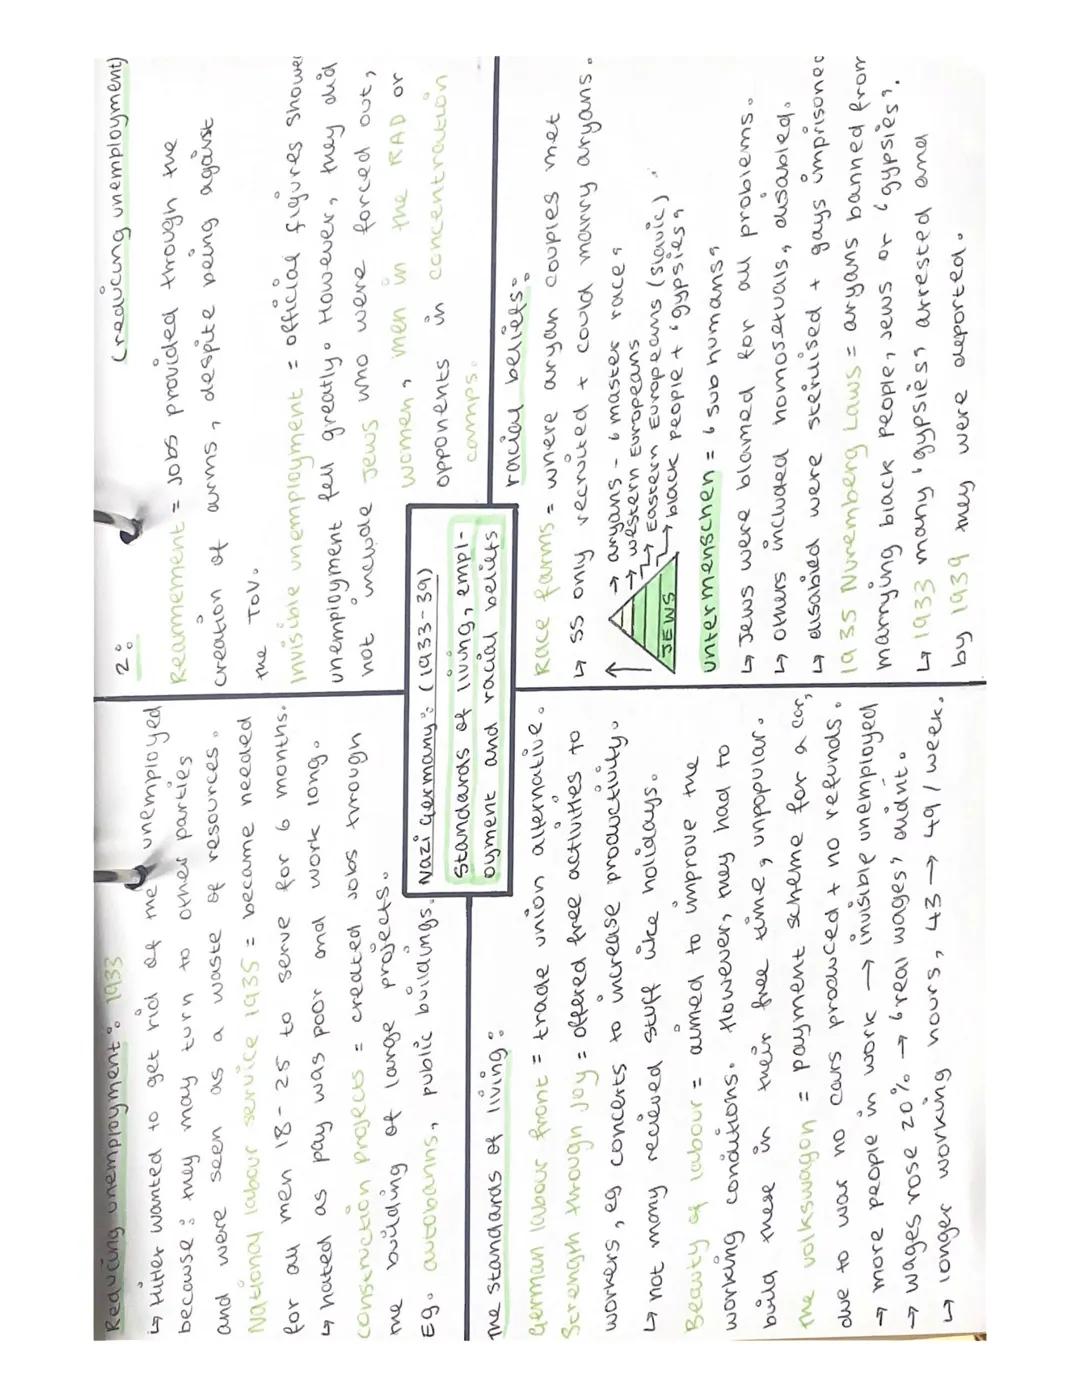 Reducing unemployment: 1933
↳ Hitler wanted to get rid of the unemployed
because: they may turn to other parties
and were seen as a waste of resources.
National labour service 1935 = became needed
for all men 18-25 to serve for 6 months.
↳ hated as pay was poor and work long.
construction projects = created jobs through
the building of large projects.
Eg. autobanns, public buildings.
2: (reducing unemployment)
Rearmement = jobs provided through the
creation of arms, despite being against
the ToV.
Invisible unemployment = official figures showed
unemployment fell greatly. However, they did
not include Jews who were forced out,
women, men in the RAD or
opponents in concentration
camps.
Nazi Germany: (1933-39)
Standards of living, empl-
oyment and racial beliefs
The standards of living:
German labour front = trade union alternative.
Strength through joy = offered free activities to
workers, eg concerts to increase productivity.
↳ not many recieved stuff like holidays.
Beauty of labour = aimed to improve the
working conditions. However, they had to
build these in their free time, unpopular.
the volkswagon = payment scheme for a car,
due to war no cars produced + no refunds.
→ more people in work → invisible unemployed
→ wages rose 20% → 'real wages' didn't.
↳ longer working hours, 43 → 49/week.
racial beliefs:
Race farms = where aryan couples met
↳ SS only recruited + could marry aryans.
→ aryans - 'master race'
→ western Europeans
→ Eastern Europeans (Slavic)
→ black people + 'gypsies'
JEWS
untermenschen = 'sub humans'
↳ Jews were blamed for all problems.
↳ others included homosexuals, disabled.
↳ disabled were sterilised + gays imprisoned
1935 Nuremberg Laws = aryans banned from
marrying black people, Jews or 'gypsies'.
↳ 1933 many 'gypsies' arrested and
by 1939 they were deported.